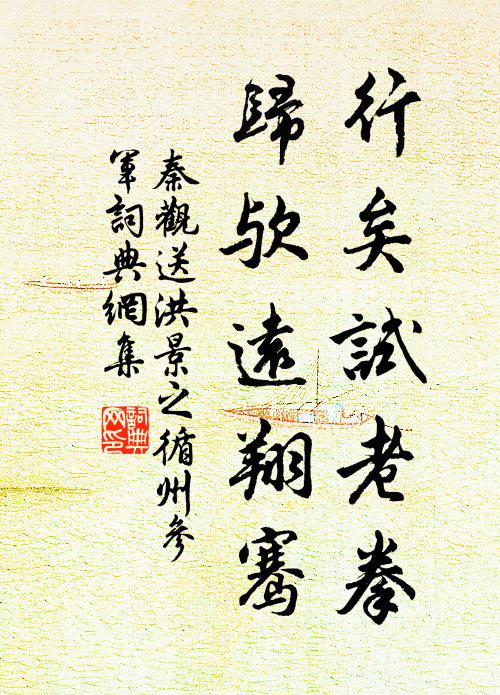 行矣試老拳
歸欤遠翔騫
秦觀送洪景之循州參
軍詞典網集
詞典
网印